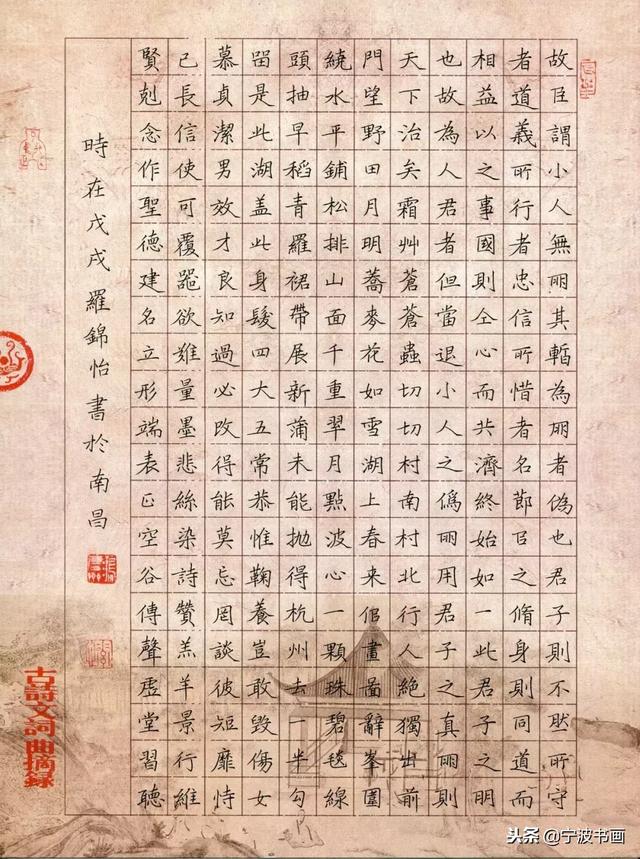 故臣謂小人無朋其暫為朋者偽也君子則不然所守
者道義所行者忠信所惜者名節以之脩身則同道而
相益以之事國則仝心而共濟終始如一此君子之明
也故為人君者但當退小人之偽朋用君子之真朋則
天下治矣霜艸蒼蒼蟲切切村南村北行人絕獨出前
門望野田月明蕎麥花如雪湖上春来佀畫啚亂峯圍
繞水平鋪松排山面千重翠月點波心一顆珠碧毯線
頭抽早稻青羅裙帶展新蒲未能拋得杭州去一半勾
留是此湖蓋此身髮四大五常恭惟鞠養豈敢毀傷女
慕貞潔男效才良知過必改得能莫忘罔談彼短靡恃
己長信使可覆器欲難量墨悲絲染詩贊羔羊景行維
賢剋念作聖德建名立形端表正空谷傳聲虛堂習聽
時在戊戌羅錦怡書於南昌
古詩文詞曲摘録
头条@宁波书画